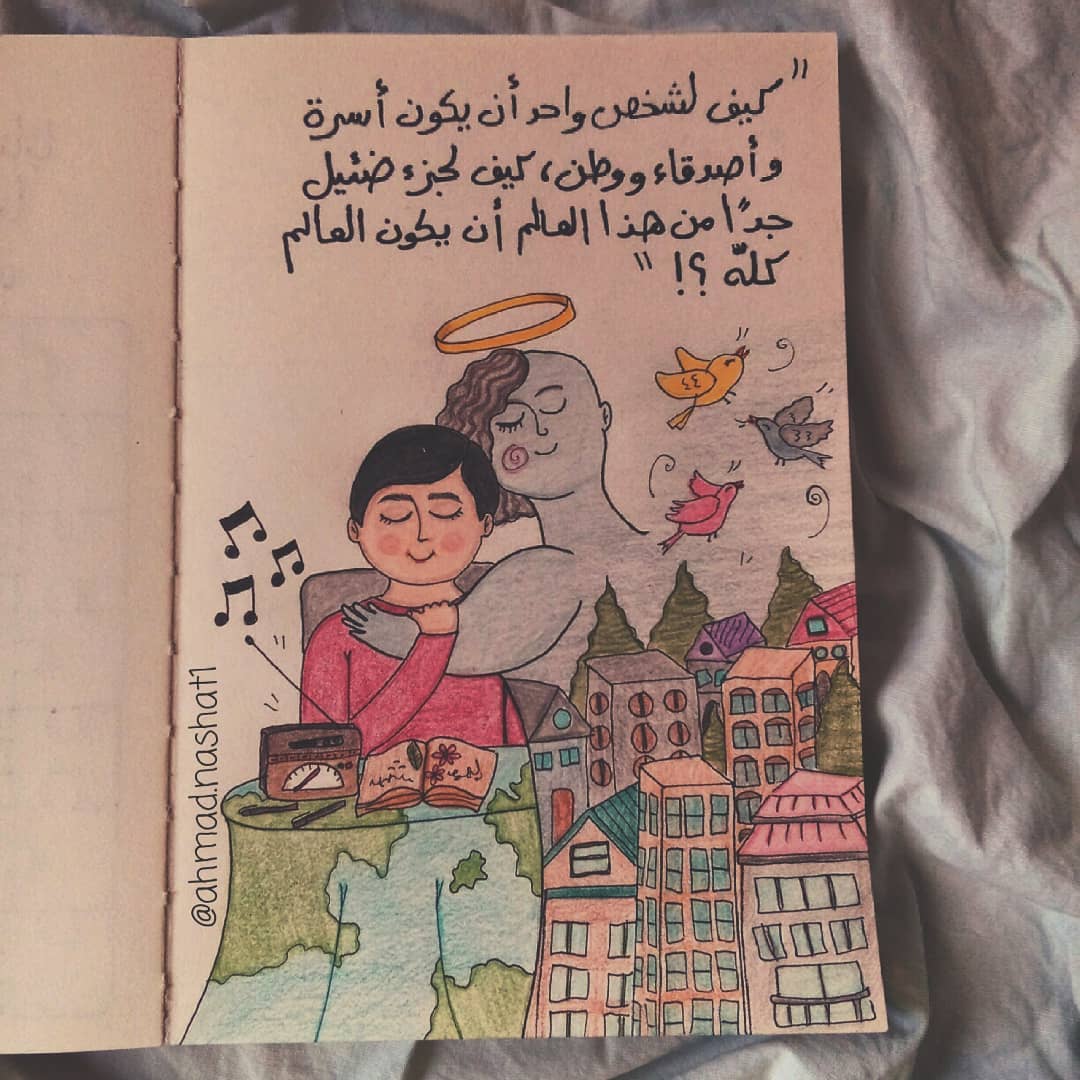 "كيف لشخص واحد أن يكون أسرة
وأصدقاء ووطن، كيف لجزء ضئيل
جدًا من هذا العالم أن يكون العالم
كلّه ؟! "
@ahmad.nashat1